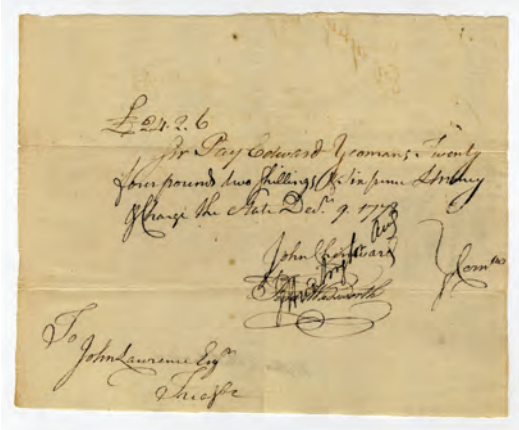 £24.2.6
Sir Pay Edward Yeomans Twenty
four pounds two shillings & sixpence Money
& Charge the State Decr. 9. 177
John Chenward
Wadsworth
Comtee
To
John Lawrence Esqr
Treasr